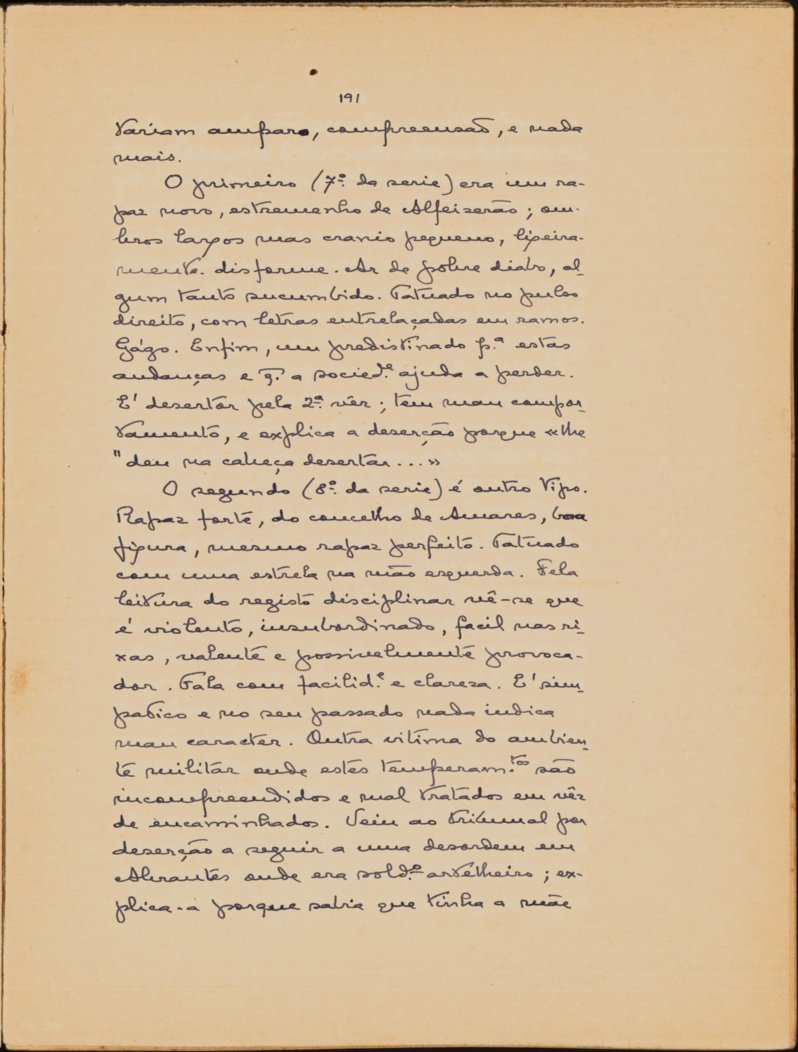 191
tariam amparo, compreensão, e nada
mais.
O primeiro (7º. da serie) era um ra-
paz novo, estremenho de Alfeizerão; om-
bros largos mas cranio pequeno, ligeira-
mente disforme. Ar de pobre diabo, al-
gum tanto sucumbido. Tatuado no pulso
direito, com letras entrelaçadas em ramos.
Gágo. Enfim, um predistinado p.ª estas
andanças e q. a socied.e ajuda a perder.
E' desertôr pela 2ª. vêz; tem mau compor-
tamento, e explica a deserção porque «lhe
"deu na cabeça desertar...»
O segundo (8º. da serie) é outro tipo.
Rapaz forte, do concelho de Amares, boa
figura, mesmo rapaz perfeito. Tatuado
com uma estrela na mão esquerda. Pela
leitura do registo disciplinar vê-se que
é violento, insubordinado, facil nas ri-
xas, valente e possivelmente provoca-
dor. Fala com facilid.e e clareza. E' sim-
patico e no seu passado nada indica
mau caracter. Outra vitima do ambien-
te militar onde estes temperam.tos são
incompreendidos e mal tratados em vêz
de encaminhados. Veiu ao tribunal por
deserção a seguir a uma desordem em
Abrantes onde era sold.º artelheiro; ex-
plica-a porque sabia que tinha a mãe